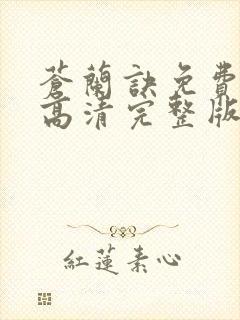 蒼蘭訣免費
高清完整版
紅蓮素心